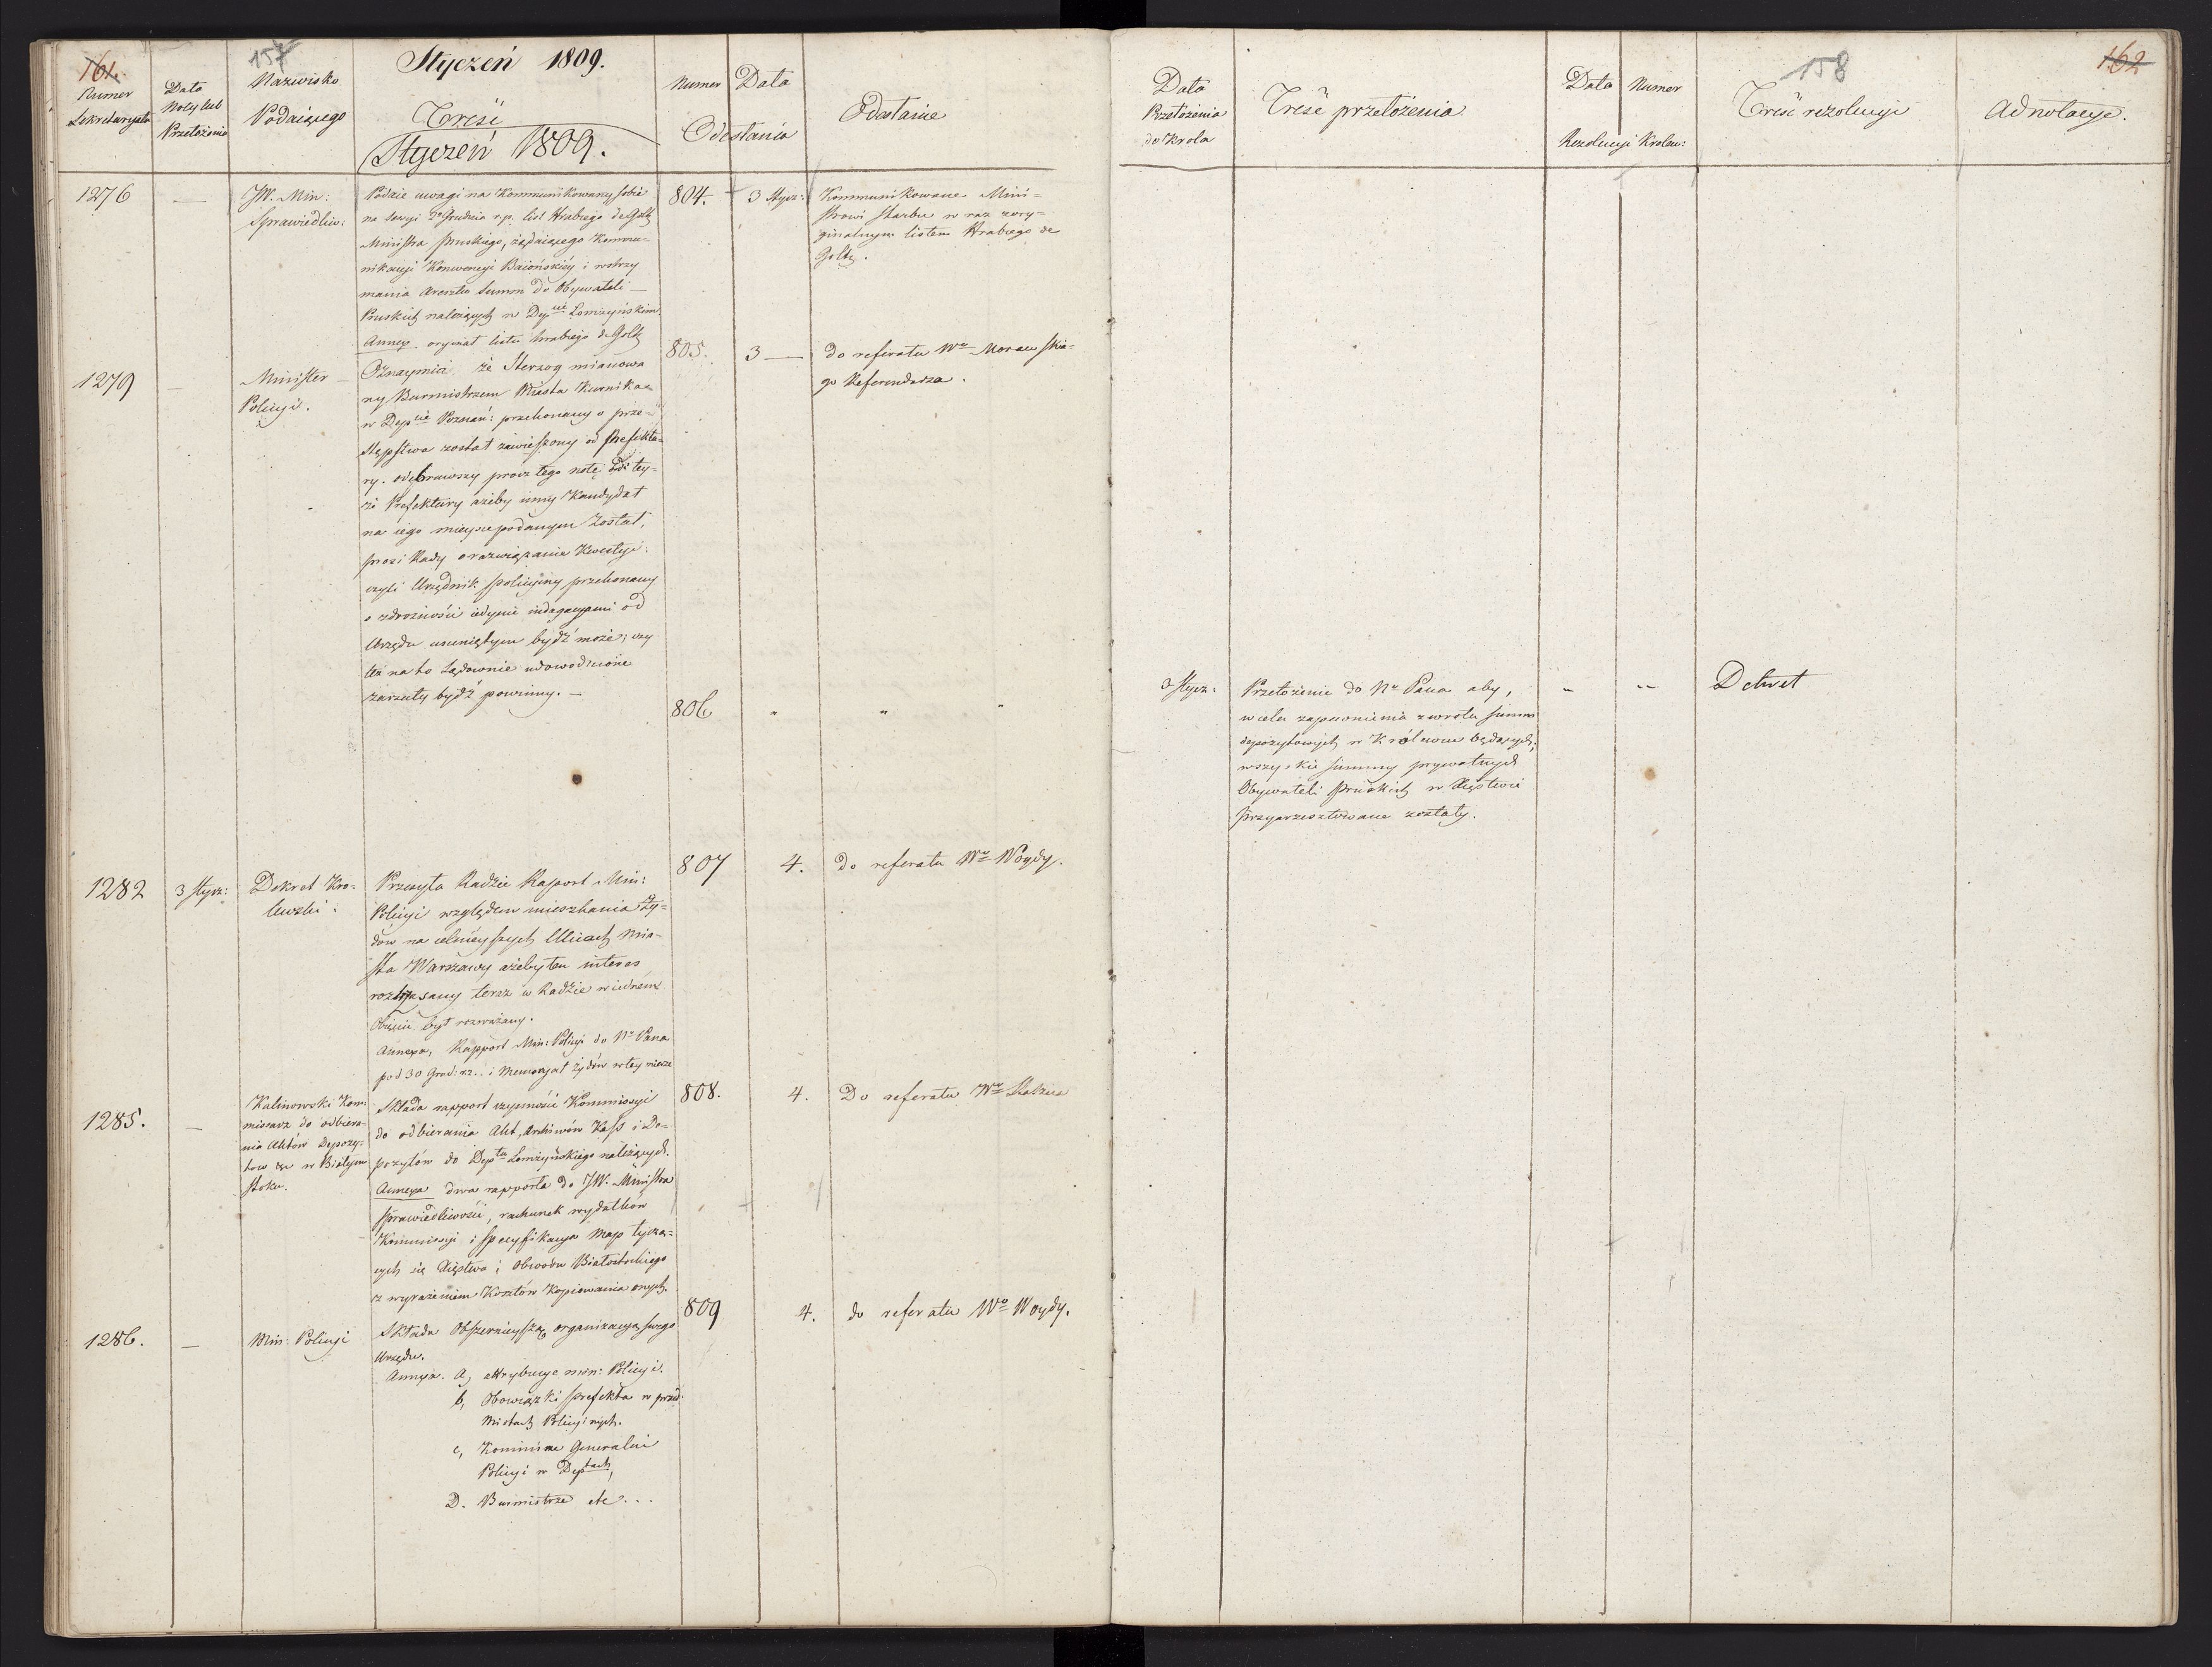 161.
157
Styczeń 1809.
Numer
Sekretaryata
Data
Noty lub
Przełożenia
Nazwisko
Podaiącego
Treść
Styczeń 1809.
Numer
Data
Odesłania
Odesłanie
1276
—
JW. Min:
Sprawiedliw:
Podaie uwagi na Kommunikowany sobie
na sessyi Grudnia r.p. list Hrabiego de Goltz
Ministra pruskiego, żądaiącego Kommu-
nikacyi Konwencyi Baiońskiéy i wstrzy
mania aresztu summ do Obywateli
Pruskich należących w Depcie Łomżyńskim
Annex oryinał listu hrabiego de Goltz
804.
3 Stycz:
Kommunikowane Mini-
strowi skarbu w raz z ory-
ginalnym listem Hrabiego de
Goltz.
1279
—
Minister
Policyi.
Oznaymia że Herzog mianowa
ny Burmistrzem Miasta Kurnika
w Depcie Poznań: przekonany o prze-
stępstwa został zawieszony od prefektu-
ry. odebrawszy prócz tego notę od tey-
że Prefektury ażeby inny Kandydat
na iego mieysce podanym został,
prosi Rady o rozwiązanie Kwestyi:
czyli Urzędnik policyiny przekonany
o zdrożności iedynie indagacyami od
Urzędu usuniętym bydź może; czy
też na to sądownie udowodnione
zarzuty bydź powinny. —
805.
3 —
do referatu Wo Morawskie-
go Referendarza.
806
"
"
"
1282
3 stycz:
Dekret Kró-
lewski.
Przesyła Radzie Raport Min:
Policyi względem mieszkania Ży-
dów na celnieyszych Ulicach Mia-
sta Warszawy ażeby ten interes
roztrząsany teraz w Radzie w iednem
był rozważany.
Annexa, Rapport Min: Policyi do No Pana
pod 30 Grud: i Memoryał żydów w tey mierze
807
4.
do referatu Wo Woydy.
1285.
—
Kalinowski Kom:
missarz do odbiera-
nia Aktów Depozy-
tow &c w Białym
stoku.
Składa rapport czynności Kommissyi
do odbierania Akt, Archiwów Kass i De-
pozytów do Deptu Łomżyńskiego należących.
Annexa dwa rapporta do JW. Ministra
sprawiedliwości, rachunek wydatków
Kommissyi i specyfikacya Map tycza-
cych się Xięstwa i Obwodu Białostockiego
z wyrażeniem Kosztów Kopiowania onych.
808.
4.
Do referatu Wo
1286.
—
Min: Policyi
Składa Obszernieyszą organizacyą swego
Urzędu.
Annexa. A, attrybucye min: Policyi.
b, Obowiązki prefekta w przed-
miotach Policyinych.
c, Kommissarze Generalni
Policyi w Deptach,
D. Burmistrze etc...
809
4.
do referatu Wo Woydy.
158
162
Data
Przełożenia
do Króla
Treść przełożenia
Data
Numer
Rezolucyi Królew:
Treść rezolucyi
Adnotacye.
3 stycz:
Przełożenie do No Pana aby,
w celu zapewnienia zwrotu summ
depozytowych w Królewcu będących,
wszyskie summy prywatnych
Obywateli pruskich w Xięstwie
przyaresztowane zostały.
"
"
Dekret